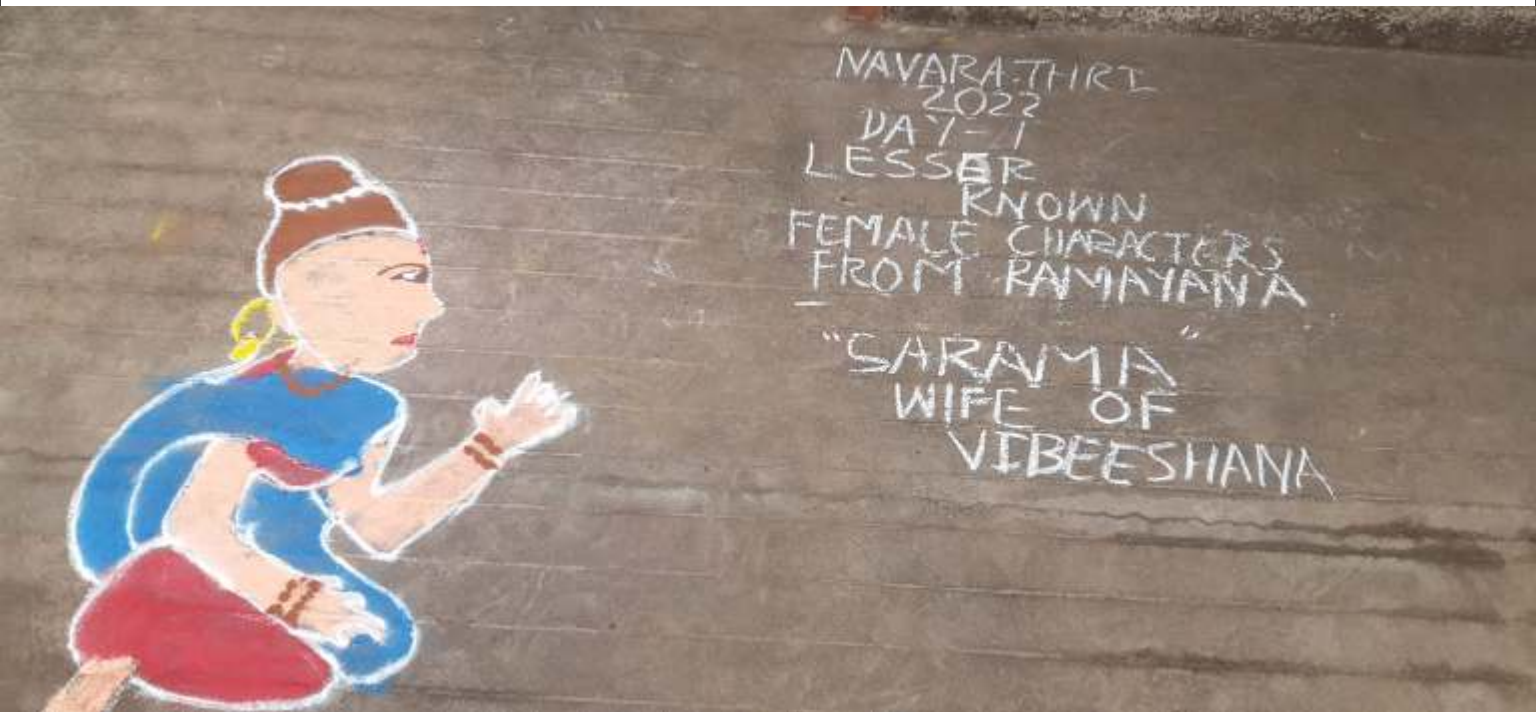 NAVARATHRI
2022
DAY-1
LESSER
KNOWN
FEMALE CHARACTERS
FROM RAMAYANA
"SARAMA"
WIFE OF
VIBEESHANA